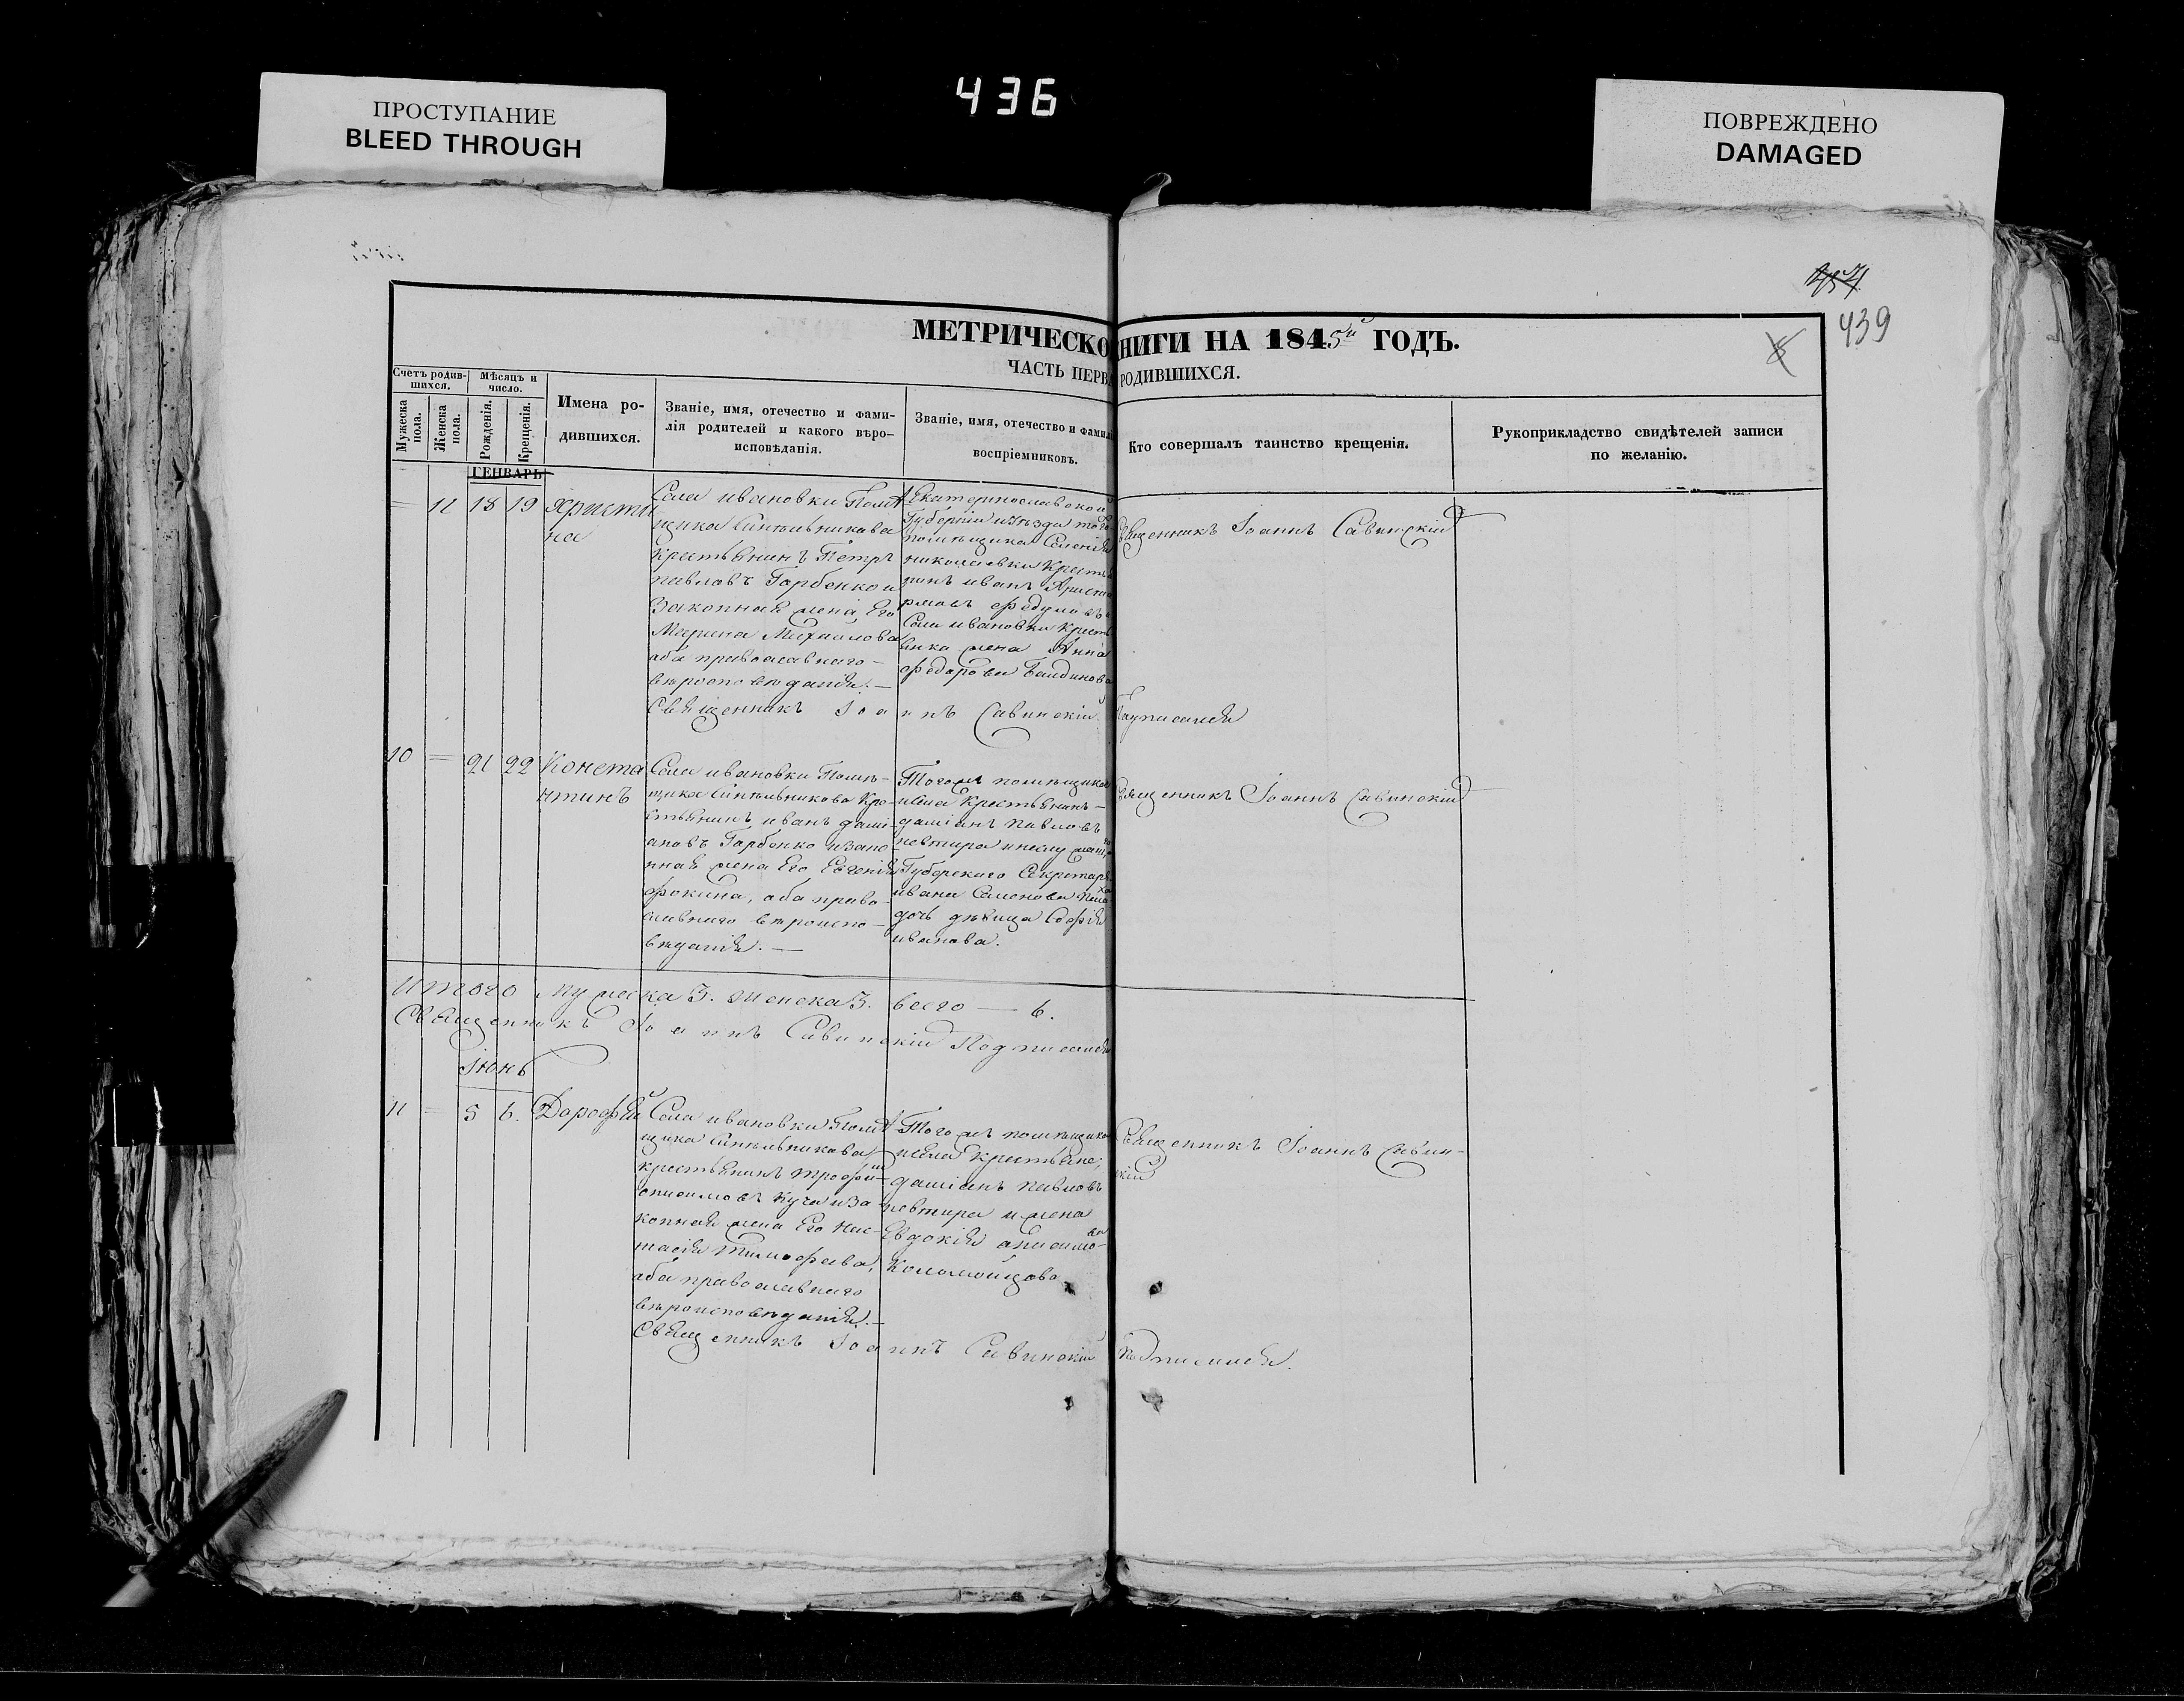 436
ПРОСТУПАНИЕ
BLEED THROUGH
ПОВРЕЖДЕНО
DAMAGED
439
МЕТРИЧЕСКО НИГИ НА 1845й ГОДЪ.
ЧАСТЬ ПЕРВА РОДИВШИХСЯ.
Счетъ родив-
шихся.
Мѣсяцъ и
число.
Мужеска
пола.
Женска
пола.
Рожденія.
Крещенія.
Имена ро-
дившихся.
Званіе, имя, отечество и фами-
лія родителей и какого вѣро-
исповѣданія.
Званіе, имя, отечество и фамилі
воспріемниковъ.
Кто совершалъ таинство крещенія.
Рукоприкладство свидѣтелей записи
по желанію.
ГЕНВАРЬ
= 11 18 19 Христи
на
Села ивановки Помѣ
щика Синельникова
крестьянинъ Петръ
павловъ Гарбенко и
Законная жена Его
Марина Михайлова
оба православнаго
вѣроисповѣданія. —
Екатеринославской
Губерніи уѣзда того
помѣщика Селенія
николаевки Кресть
нинъ иванъ
Села ивановки Кресть
янка жена Анна
федорова
Священникъ Іоаннъ Савинскій
Священникъ Іоаннъ Савинскій Подписался
10 = 21 22 Конста
нтинъ
Села ивановки Помѣ-
щика Синельникова Кре-
стьянинъ иванъ дамі-
ановъ Гарбенко и зако-
нная жена Его Евгенія
фокина, оба право-
славнаго вѣроиспо-
вѣданія. —
Тогожъ помѣщика
села Крестьянинъ
даміанъ павловъ
Губерскаго Секретаря
ивана Семенова
дочь дѣвица Софія
иванова.
Священникъ Іоаннъ Савинскій
Итого мужеска 3. женска 3. всего — 6.
Священникъ Іоаннъ Савинскій Подписался
Іюнь
11 = 5 6. Дорофей
Села ивановки Помѣ
щика Синельникова
крестьянинъ трофим
онисимовъ Куча и за
конная жена Его Нас-
тасія тимофеева,
оба православнаго
вѣроисповѣданія. —
Тогожъ помѣщика
села Крестьяне;
даміанъ павловъ
и жена
Евдокія анисимова
Коломойцова
Священникъ Іоаннъ Савин-
скій
Священникъ Іоаннъ Савинскій Подписался.